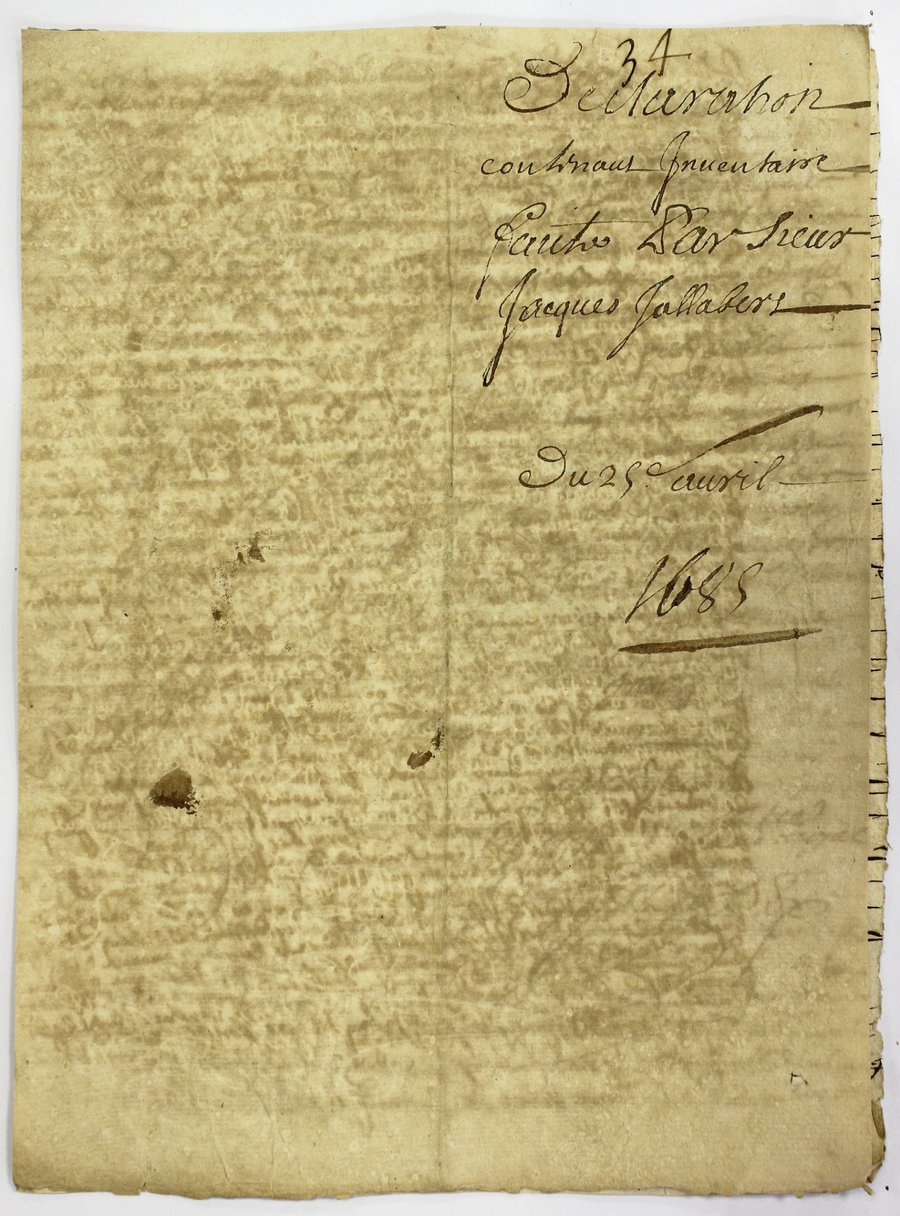 34
Declaration
contenant Inuentaire
faitte Par Sieur
Jacques Jallabert
Du 25e auril
1685